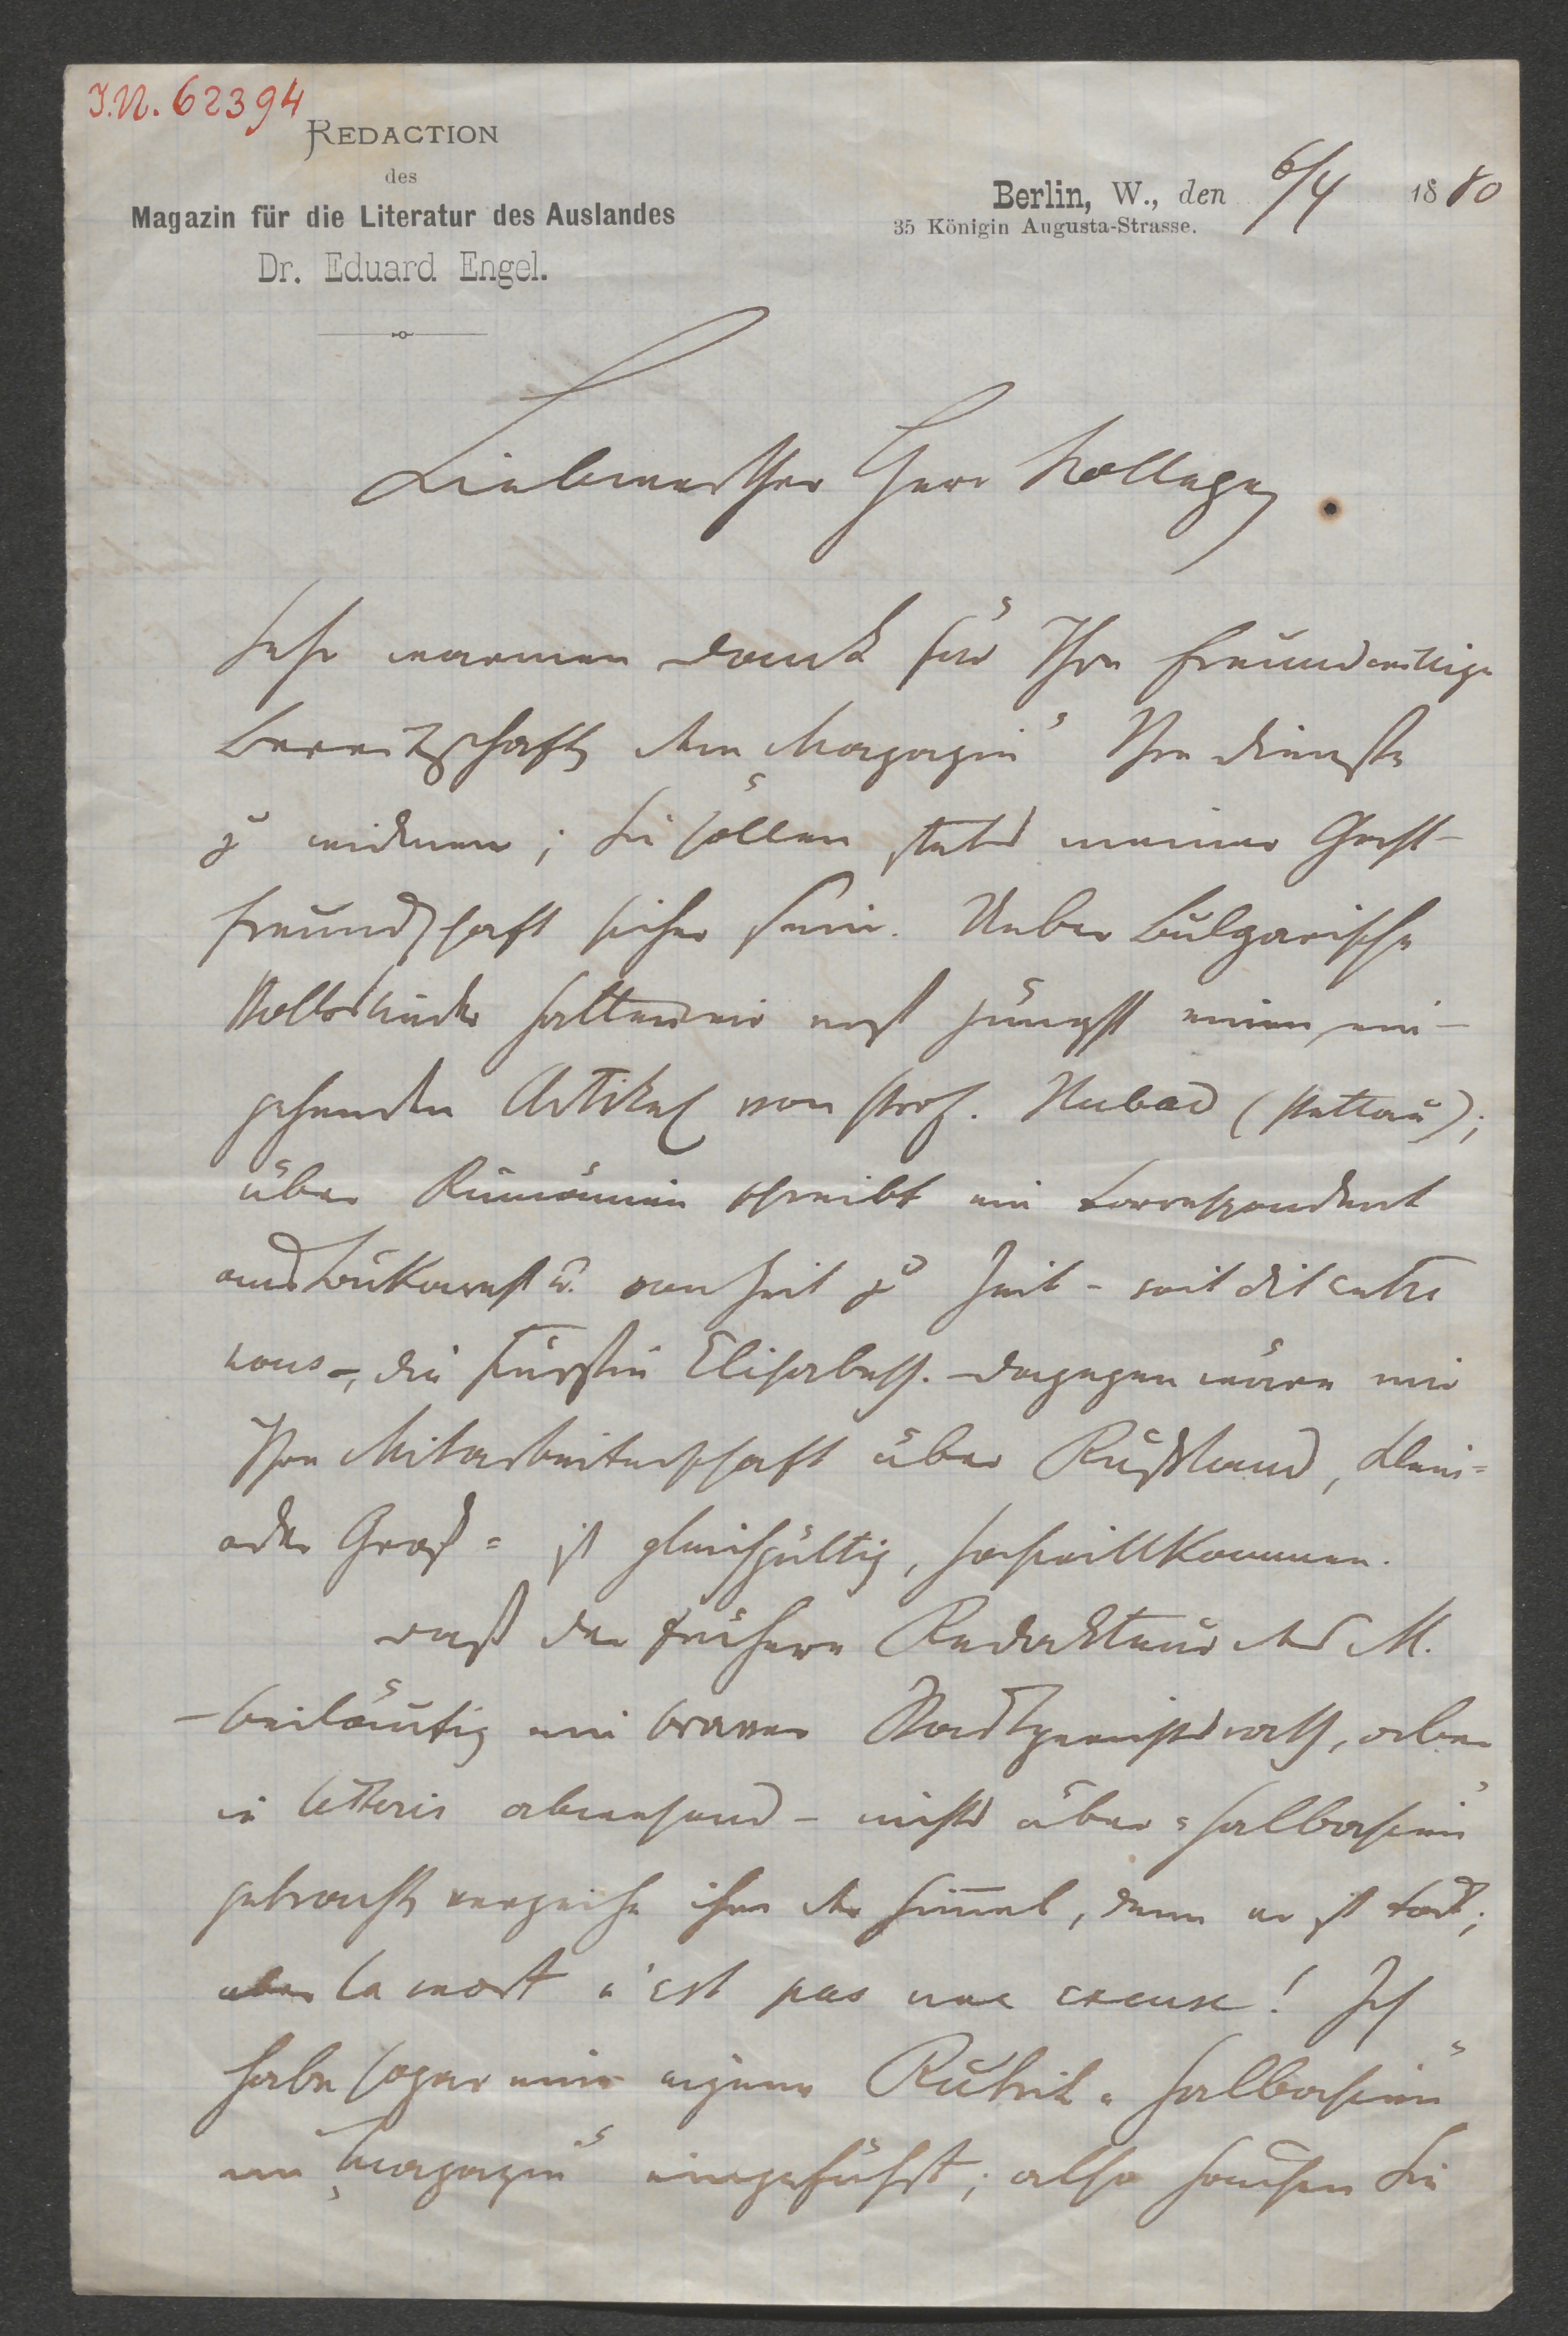 I.N. 62394
REDACTION
des
Magazin für die Literatur des Auslandes
Dr. Eduard Engel.
Berlin, W., den 6/4 1880
35 Königin Augusta-Strasse.
Liebwerther Herr Kollege,
Sehr warmen Dank für Ihre freundwillige
Bereitschaft, dem „Magazin" Ihre Dienste
zu widmen; Sie sollen stets meiner Gast-
freundschaft sicher sein. Ueber Bulgarische
Volkslieder hatten wir erst jüngst einen ein-
gehenden Artikel von Prof. Hubad (Pettau);
über Rumänien schreibt ein Correspondent
aus Bukarest u. von Zeit zu Zeit – soit dit entre
nous –, die Fürstin Elisabeth. Dagegen wäre mir
Ihre Mitarbeiterschaft über Rußland, Klein=
oder Groß= ist gleichgültig, hochwillkommen.
Daß der frühere Redakteur des M.
– beiläufig ein braver Stadtgerichtsrath, aber
in litteris abwesend – nichts über „Halbasien"
gebracht, verzeihe ihm der Himmel, denn er ist todt;
aber la mort n'est pas une excuse! Ich
habe sogar eine eigene Rubrik „Halbasien"
im „Magazin" eingeführt; also Sie